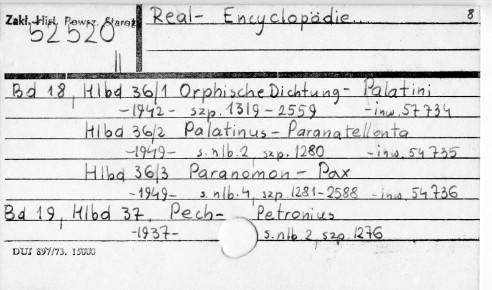 Zakł. Hist. Powsz. Staroż.
52520
II
Real- Encyclopädie...
8
Bd 18, Hlbd 36/1 Orphische Dichtung- Palatini
-1942- szp. 1319-2559 -inw. 57734
Hlbd 36/2 Palatinus-Paranatellonta
-1949- s.nlb.2, szp. 1280 -inw. 54735
Hlbd 36/3 Paranomon - Pax
-1949- s.nlb.4, szp 1281-2588 -inw. 54736
Bd 19, Hlbd 37, Pech- Petronius
-1937- s.nlb 2, szp. 1276
DUJ 897/73. 15000